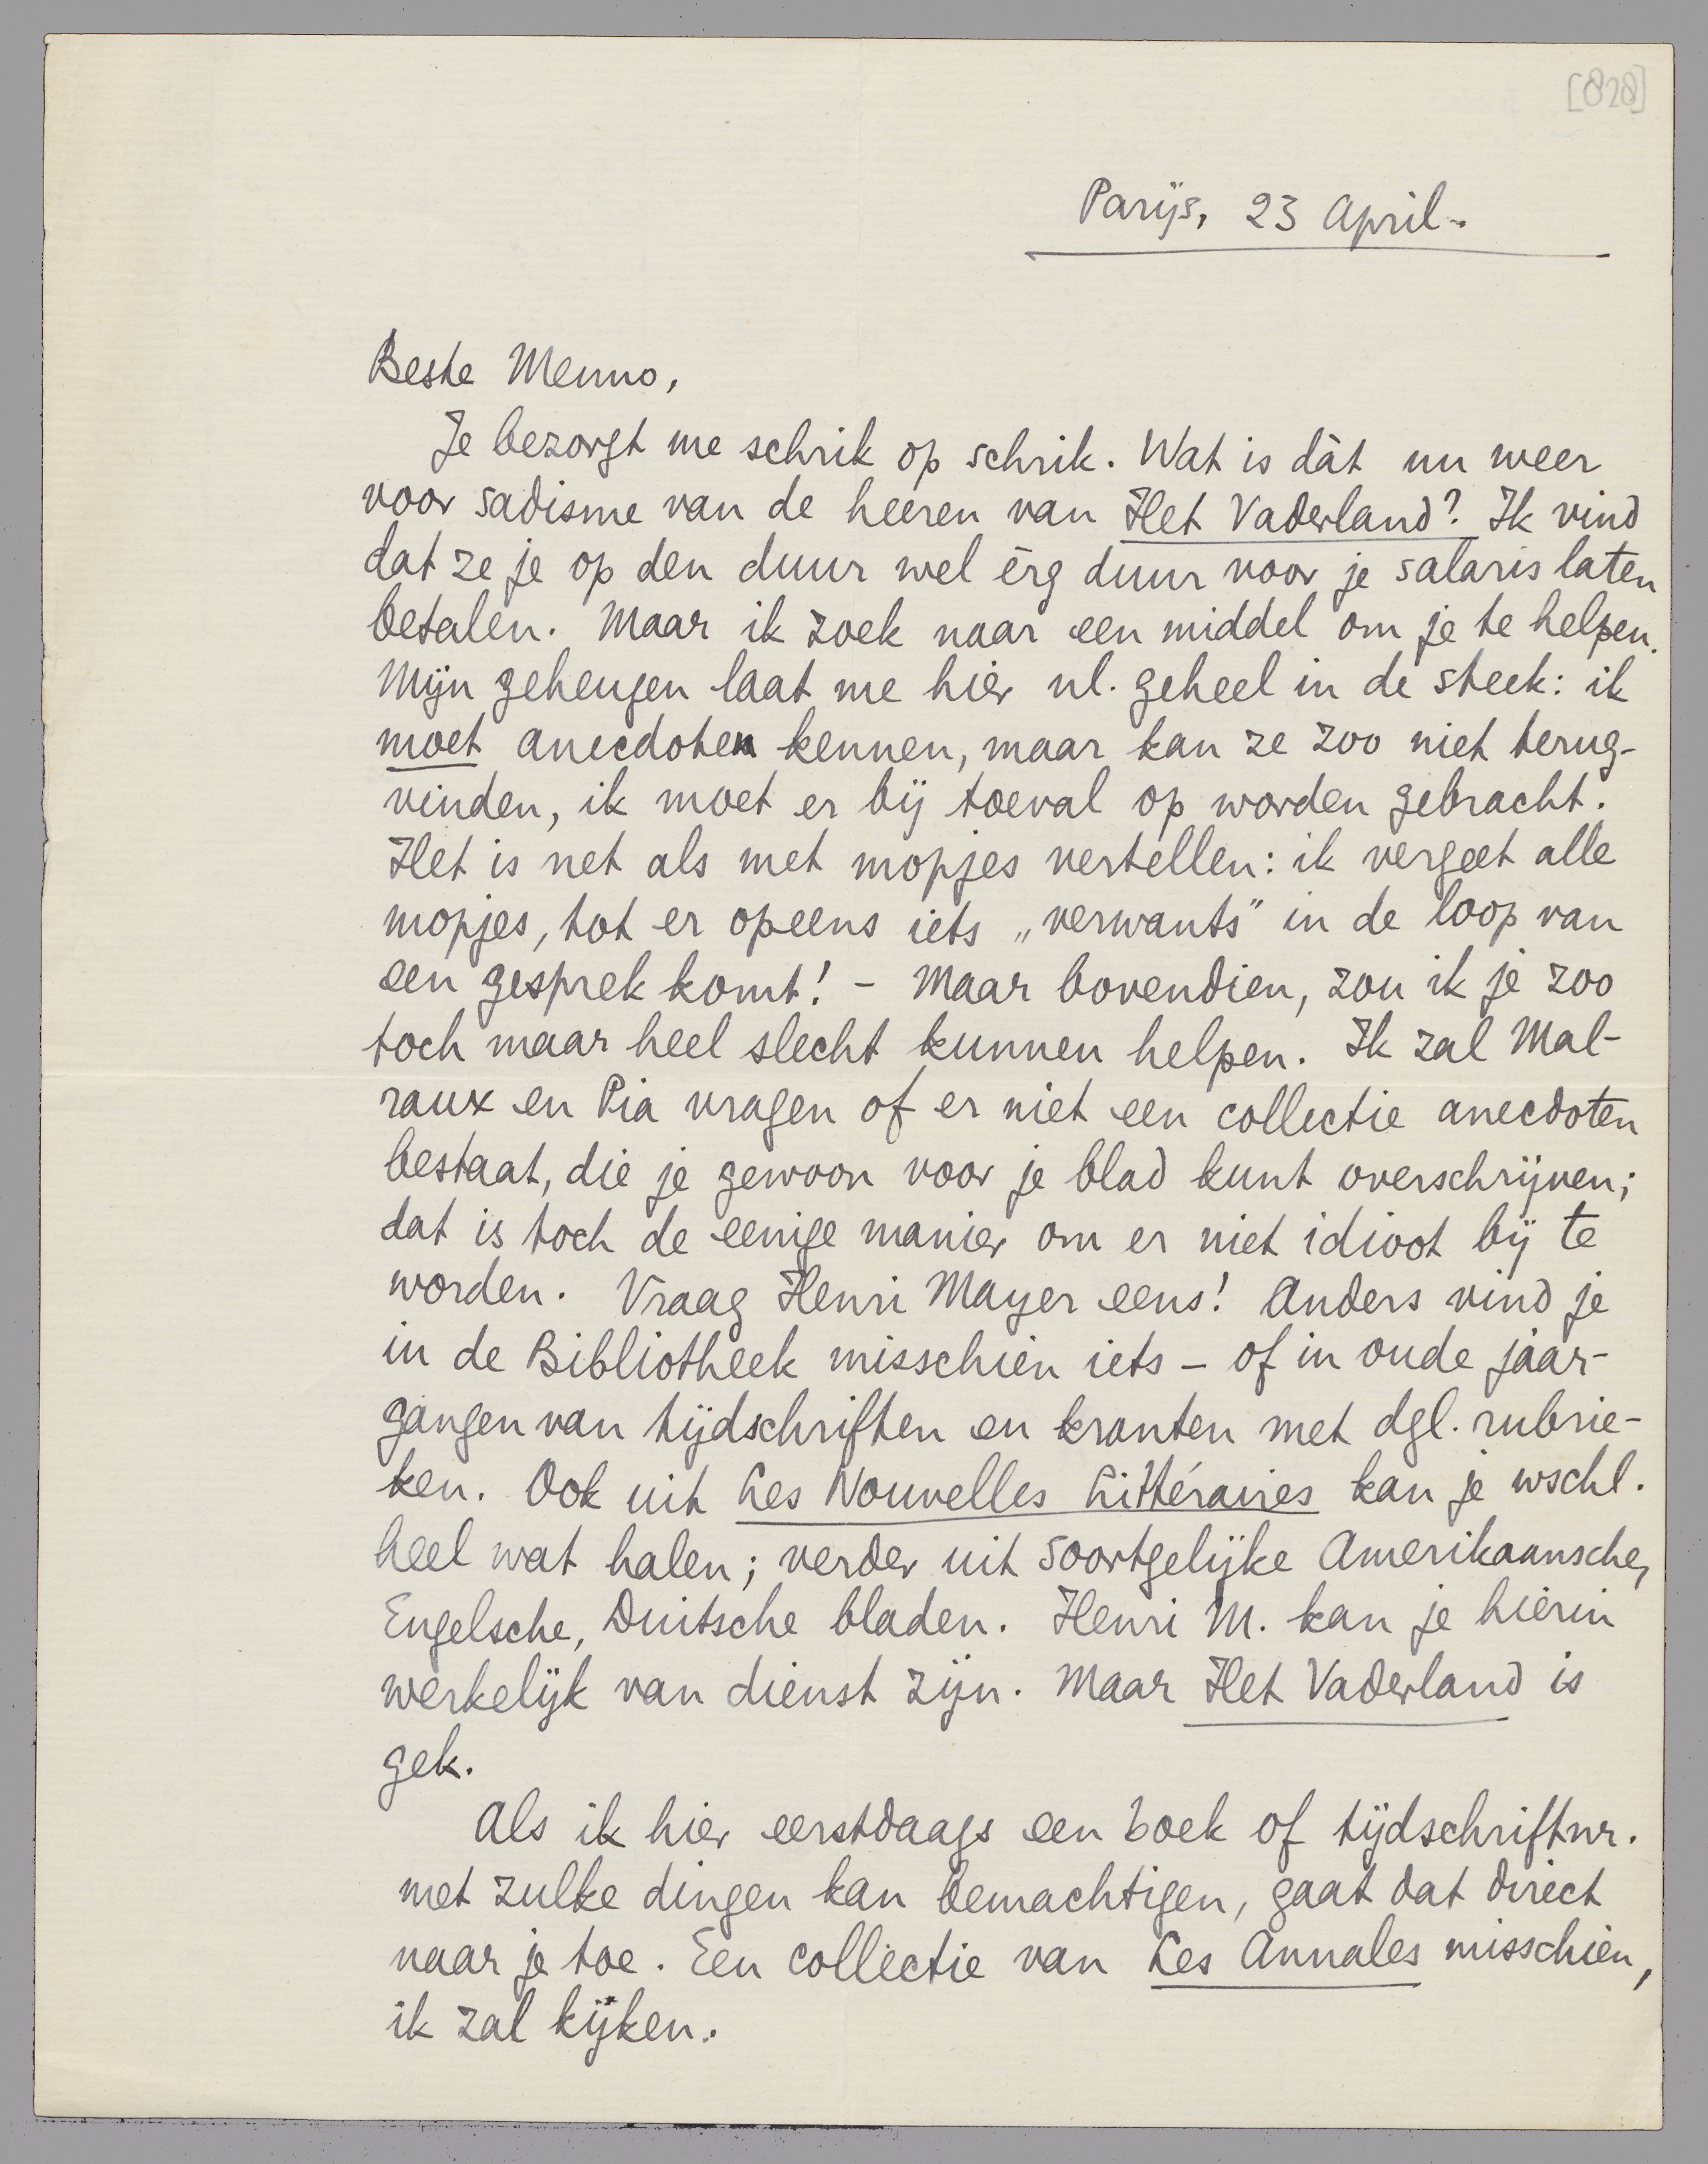 [828]
Parijs, 23 April.
Beste Menno,
Je bezorgt me schrik op schrik. Wat is dàt nu weer
voor sadisme van de heeren van Het Vaderland? Ik vind
dat ze je op den duur wel èrg duur voor je salaris laten
betalen. Maar ik zoek naar een middel om je te helpen.
Mijn geheugen laat me hier nl. geheel in de steek: ik
moet anecdoten kennen, maar kan ze zoo niet terug-
vinden, ik moet er bij toeval op worden gebracht.
Het is net als met mopjes vertellen: ik vergeet alle
mopjes, tot er opeens iets „verwants" in de loop van
een gesprek komt! - Maar bovendien, zou ik je zoo
toch maar heel slecht kunnen helpen. Ik zal Mal-
raux en Pia vragen of er niet een collectie anecdoten
bestaat, die je gewoon voor je blad kunt overschrijven;
dat is toch de eenige manier om er niet idioot bij te
worden. Vraag Henri Mayer eens! Anders vind je
in de Bibliotheek misschien iets - of in oude jaar-
gangen van tijdschriften en kranten met dgl. rubrie-
ken. Ook uit Les Nouvelles Littéraires kan je wschl.
heel wat halen; verder uit soortgelijke Amerikaansche,
Engelsche, Duitsche bladen. Henri M. kan je hierin
werkelijk van dienst zijn. Maar Het Vaderland is
gek.
Als ik hier eerstdaags een boek of tijdschriftnr.
met zulke dingen kan bemachtigen, gaat dat direct
naar je toe. Een collectie van Les Annales misschien,
ik zal kijken.